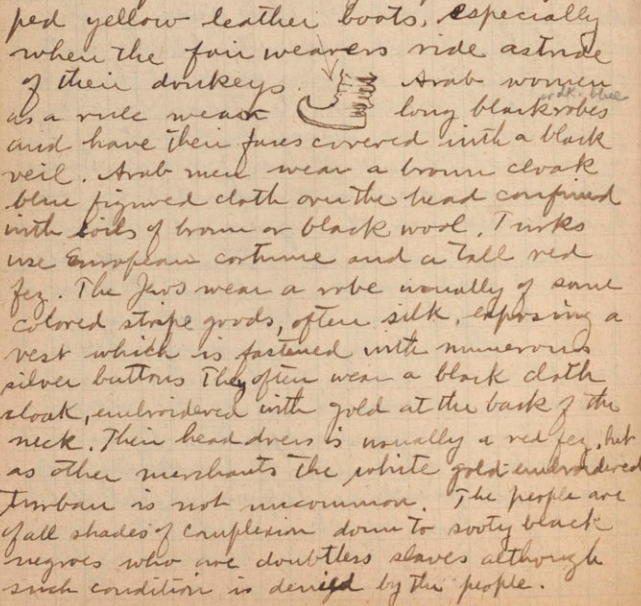 ped yellow leather boots, especially
when the fair wearers ride astride
of their donkeys. Arab women
or dk. blue
as a rule wear long black robes
and have their faces covered with a black
veil. Arab men wear a brown cloak
blue figured cloth over the head confined
with coils of brown or black wool. Turks
use European costume and a tall red
fez. The Jews wear a robe usually of some
colored stripe goods, often silk, exposing a
vest which is fastened with numerous
silver buttons They often wear a black cloth
cloak, embroidered with gold at the back of the
neck. Their head dress is usually a red fez, but
as other merchants the white gold-embroidered
turban is not uncommon. The people are
of all shades of complexion down to sooty black
negroes who are doubtless slaves although
such condition is denied by the people.